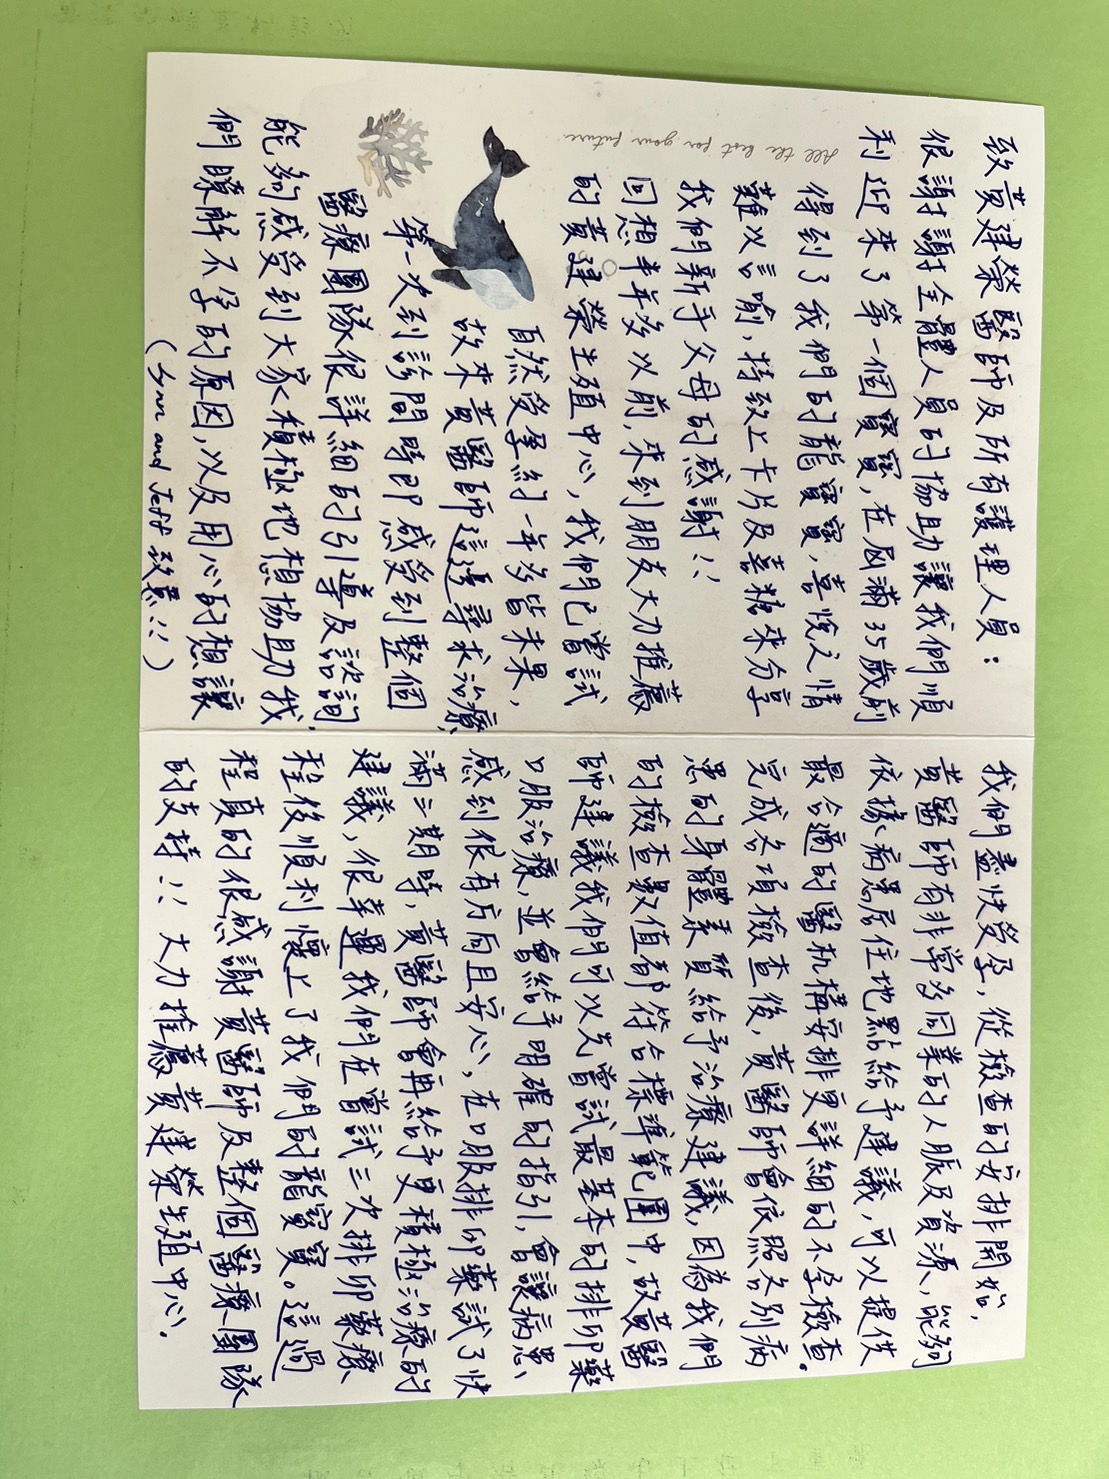 致黃建榮醫師及所有護理人員：
很謝謝全體人員的協助讓我們順
利迎來了第一個寶寶，在屆滿35歲前
得到了我們的龍寶寶，喜悅之情
難以言喻，特致上卡片及喜糖來分享
我們新手父母的感謝！！
回想半年多以前，來到朋友大力推薦
的黃建榮生殖中心，我們已嘗試
自然受孕約一年多皆未果，
故來黃醫師這邊尋求治療，
第一次到診間時即感受到整個
醫療團隊很詳細的引導及諮詢，
能夠感受到大家積極地想協助我
們瞭解不孕的原因，以及用心的想讓
(Lynn and Jeff 致意！！)
All the best for your future.
我們盡快受孕，從檢查的安排開始，
黃醫師有非常多同業的人脈及資源，能夠
依據病患居住地點給予建議，可以提供
最合適的醫机構安排更詳細的不孕檢查。
完成各項檢查後，黃醫師會依照各別病
患的身體素質給予治療建議，因為我們
的檢查數值都符合標準範圍中，故黃醫
師建議我們可以先嘗試最基本的排卵藥
口服治療，並會給予明確的指引，會讓病患
感到很有方向且安心，在口服排卵藥試了快
滿三期時，黃醫師會再給予更積極治療的
建議，很幸運我們在嘗試三次排卵藥療
程後順利懷上了我們的龍寶寶。這過
程真的很感謝黃醫師及整個醫療團隊
的支持！！大力推薦黃建榮生殖中心。